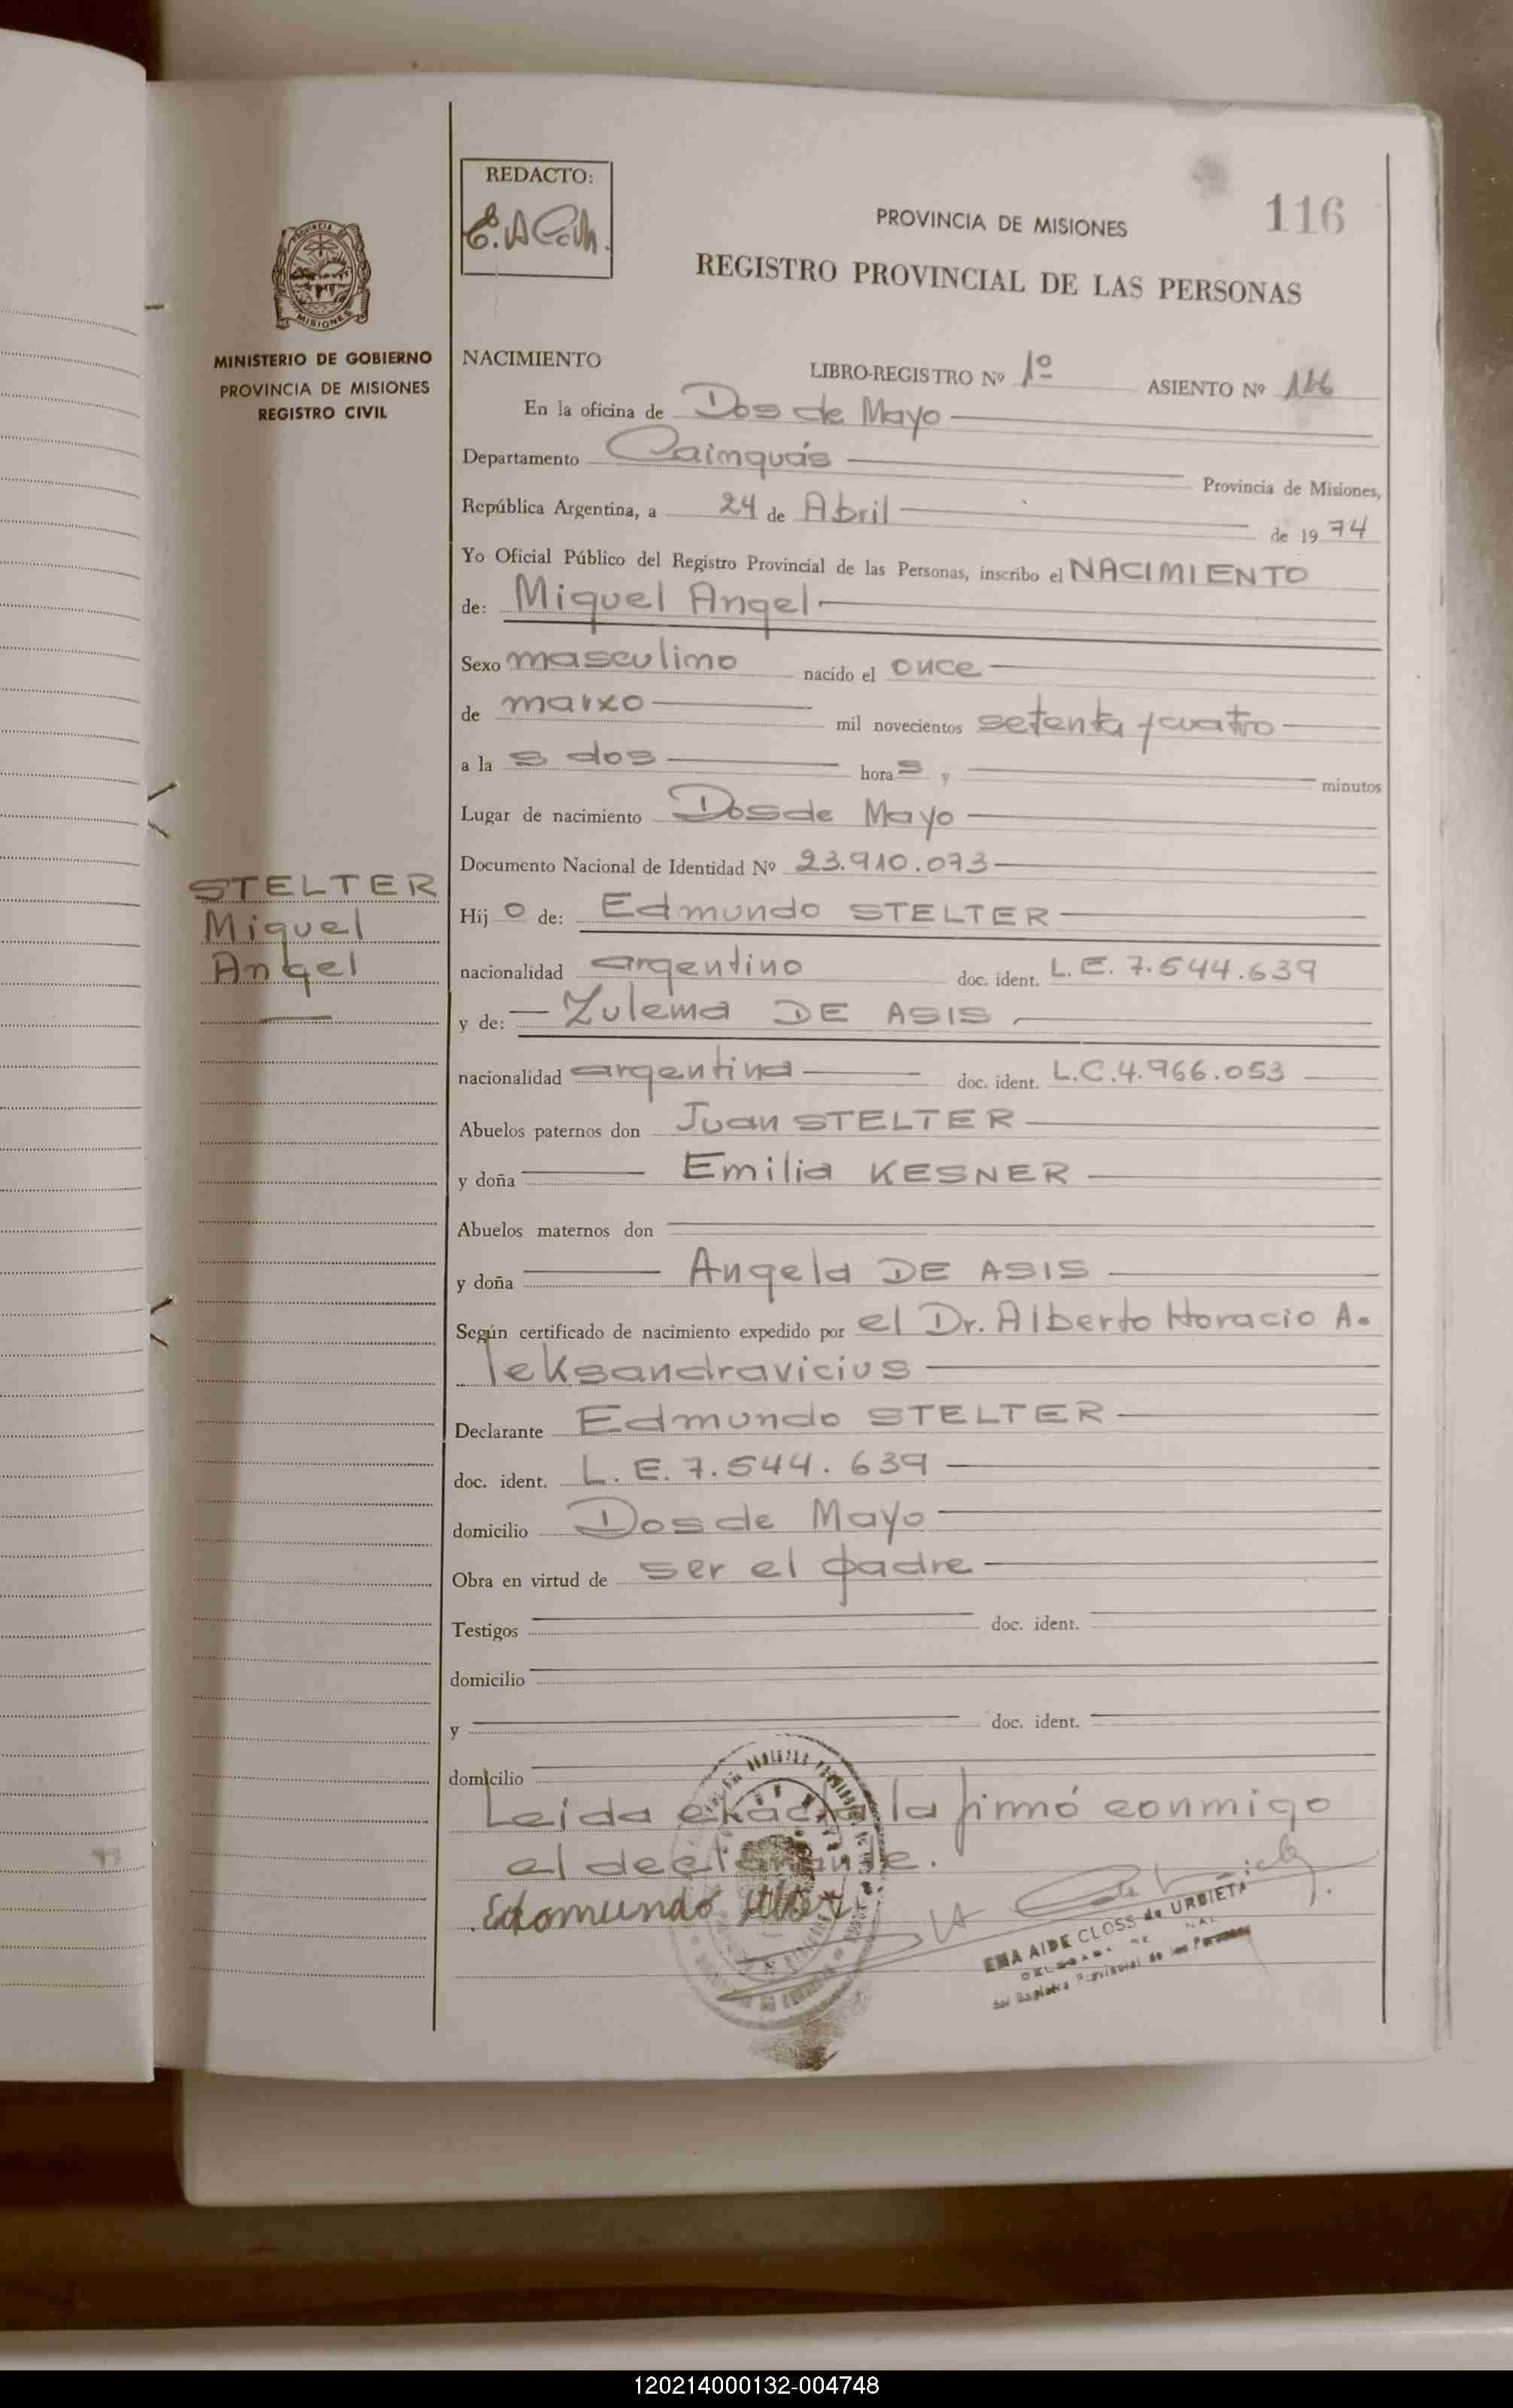 REDACTO:
PROVINCIA DE MISIONES
116
REGISTRO PROVINCIAL DE LAS PERSONAS
MISIONES
MINISTERIO DE GOBIERNO
PROVINCIA DE MISIONES
REGISTRO CIVIL
NACIMIENTO LIBRO-REGISTRO Nº 1º ASIENTO Nº 116
En la oficina de Dos de Mayo
Departamento Cainguás Provincia de Misiones,
República Argentina, a 24 de Abril de 1974
Yo Oficial Público del Registro Provincial de las Personas, inscribo el NACIMIENTO
de: Miguel Angel
Sexo masculino nacido el once
de marzo mil novecientos setenta y cuatro
a la s dos hora s y minutos
Lugar de nacimiento Dos de Mayo
Documento Nacional de Identidad Nº 23.910.073
STELTER
Miguel
Angel
Hij o de: Edmundo STELTER
nacionalidad argentino doc. ident. L.E. 7.544.639
y de: Zulema DE ASIS
nacionalidad argentina doc. ident. L.C. 4.966.053
Abuelos paternos don Juan STELTER
y doña Emilia KESNER
Abuelos maternos don
y doña Angela DE ASIS
Según certificado de nacimiento expedido por el Dr. Alberto Horacio A.
leksandravicius
Declarante Edmundo STELTER
doc. ident. L.E. 7.544.639
domicilio Dos de Mayo
Obra en virtud de ser el padre
Testigos doc. ident.
domicilio
y doc. ident.
domicilio
Leída exacta la firmó conmigo
el declarante.
Edomundo
EMA AIDE CLOSS de URBIETA
del Registro Provincial de las Personas
120214000132-004748